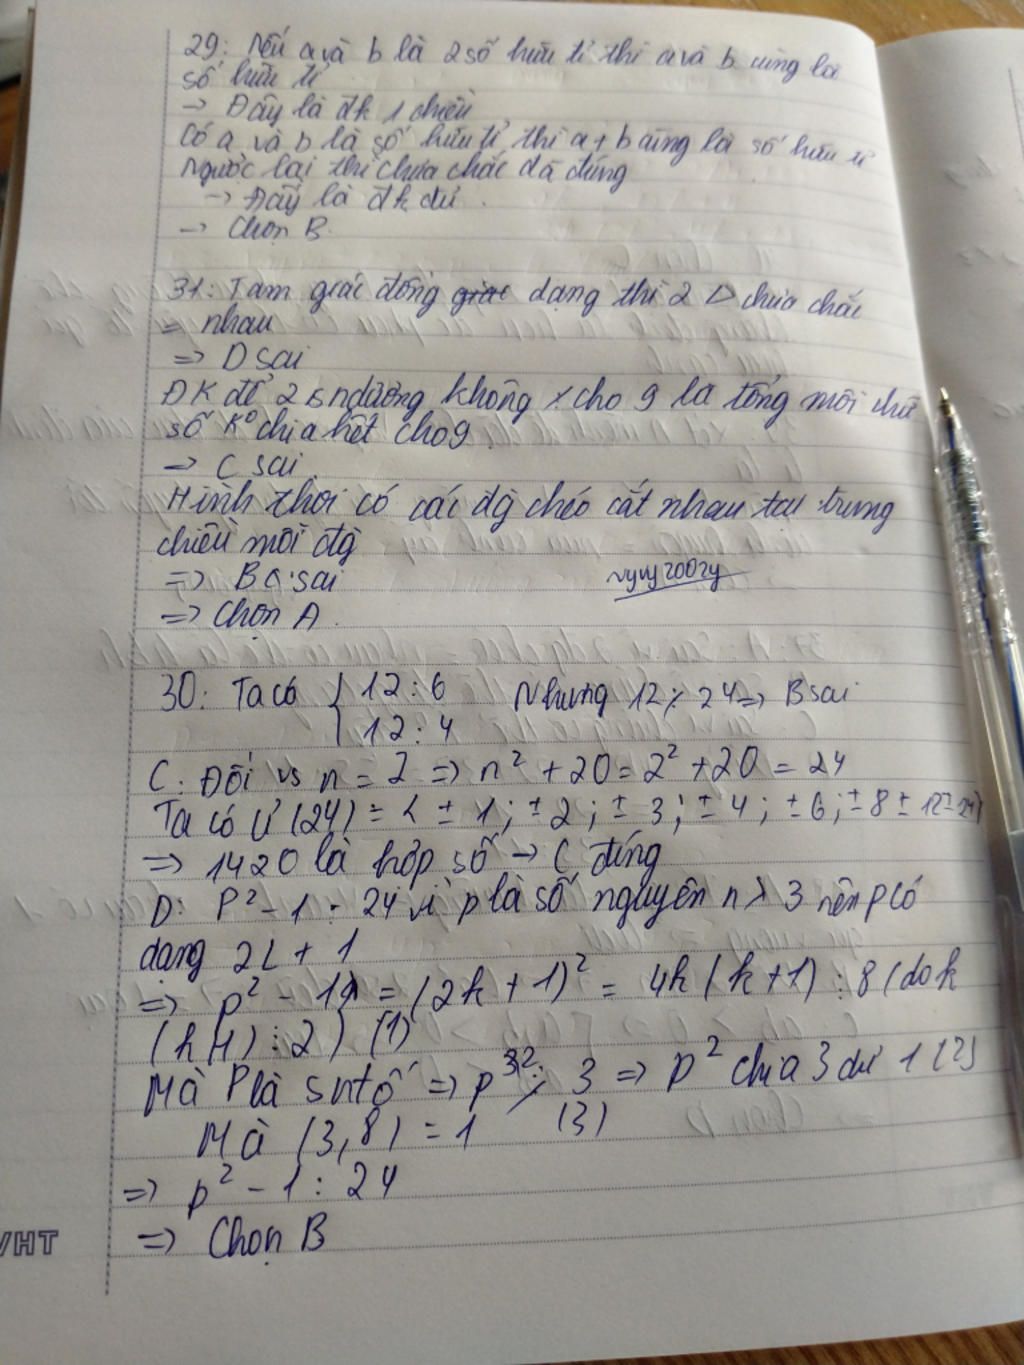 29: Nếu a và b là 2 số hữu tỉ thì a và b cũng là
số hữu tỉ
→ Đây là đk 1 chiều
Có a và b là số hữu tỉ thì a + b cũng là số hữu tỉ
Ngược lại thì chưa chắc đã đúng
→ Đây là đk đủ.
→ Chọn B.
31: Tam giác đồng giác dạng thì 2 Δ chưa chắc
= nhau
=> D sai
ĐK để 2 sn dương không ⋮ cho 9 là tổng mỗi chữ
số K° chia hết cho 9
=> C sai
Hình thoi có các đg chéo cắt nhau tại trung
chiều mỗi đg
=> B sai
vyvy2002y
=> Chọn A.
30: Ta có { 12 : 6 Nhưng 12 ⋮̸ 24 => B sai
12 : 4
C: Đối vs n = 2 => n² + 20 = 2² + 20 = 24
Ta có Ư (24) = { ± 1; ± 2; ± 3; ± 4; ± 6; ± 8 ± 12 ± 24}
=> 1420 là hợp số → C đúng
D: P² - 1 : 24 vì p là số nguyên n > 3 nên p có
dạng 2L + 1
=> p² - 1 = (2k + 1)² = 4k (k + 1) : 8 (do k
(k+1) : 2) (1)
Mà P là sntố => p ⋮̸ 3 => p² chia 3 dư 1 (2)
Mà (3, 8) = 1 (3)
=> p² - 1 : 24
=> Chọn B
VHT